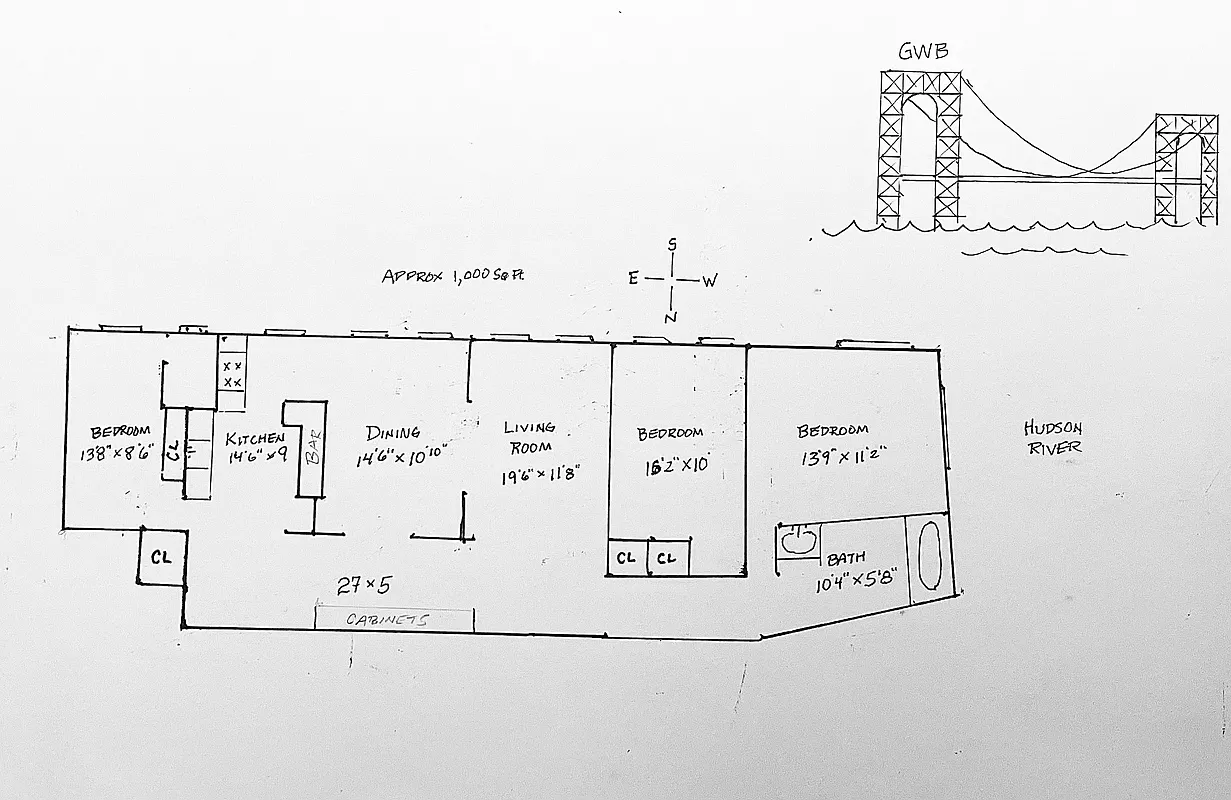 GWB
S
E W
N
APPROX 1,000 SQ FT
BEDROOM
13'8" x 8'6"
CL
KITCHEN
14'6" x 9
BAR
DINING
14'6" x 10'10"
LIVING
ROOM
19'6" x 11'8"
BEDROOM
16'2" x 10'
BEDROOM
13'9" x 11'2"
HUDSON
RIVER
CL
CL
CL
BATH
10'4" x 5'8"
27 x 5
CABINETS